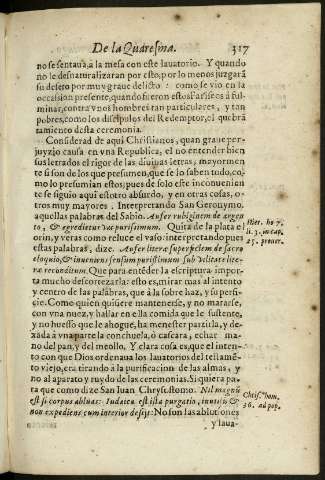 De la Quaresma. 317
no se sentaua, à la mesa con este lauatorio. Y quando
no le desnaturalizaran por esto, por lo menos juzgarã
su desero por muy graue delicto: como se vio en la
occasion presente, quando fueron estos Fariseos à ful-
minar, contra vnos hombres tan particulares, y tan
pobres, como los discipulos del Redemptor, el quebrã
tamiento desta ceremonia.
Considerad de aqui Christianos, quan graue per-
juyzio causa en vna Republica, el no entender bien
sus letrados el rigor de las diuinas letras, mayormen
te si son de los que presumen, que se lo saben todo, co-
mo lo presumian estos; pues de solo este inconuenien
te se siguio aqui estotro absurdo, y en otras cosas, o-
tros muy mayores. Interpretando San Geronymo,
aquellas palabras del Sabio. Aufer rubiginem de argen
to, & egredietur vas purissimum. Quita de la plata el
orin, y veras como reluce el vaso: interpretando pues
estas palabras, dize. Aufer literæ superficiem de sacro
eloquio, & inuenies sensum purissimum sub vilitate lite-
ræ reconditum. Que para entẽder la escriptura impor-
ta mucho descortezarla: esto es, mirar mas al intento
y centro de las palabras, que à la sobre haz, y su perfi-
cie. Como quien quisiere mantenerse, y no matarse,
con vna nuez, y hallar en ella comida que le sustente,
y no huesso que le ahogue, ha menester partirla, y de-
xada à vna parte la conchuela, ò cascara, echar ma-
no del pan, y del meollo. Y clara cosa es, que el inten-
to con que Dios ordenaua los lauatorios del testamẽ-
to viejo, era tirando à la purificacion de las almas, y
no al aparato y ruydo de las ceremonias. Si quiera pa-
ra que como dize San Iuan Chrysostomo. Nil magnũ
est si corpus abluas: Iudaica est ista purgatio, inutilis &
non expediens cum interior desit: No son las ablutiones
y laua-
Hier. ho 7.
li. 3. in cap.
25. prouer.
Chris. hom.
36. ad pop.